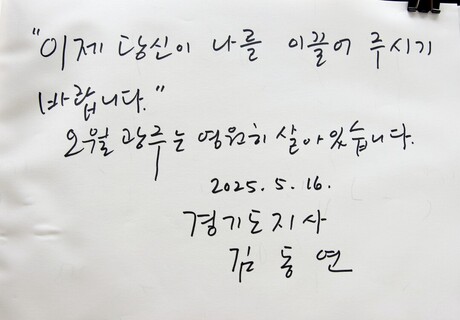 "이제 당신이 나를 이끌어 주시기
바랍니다."
오월 광주는 영원히 살아있습니다.
2025. 5. 16.
경기도지사
김 동 연